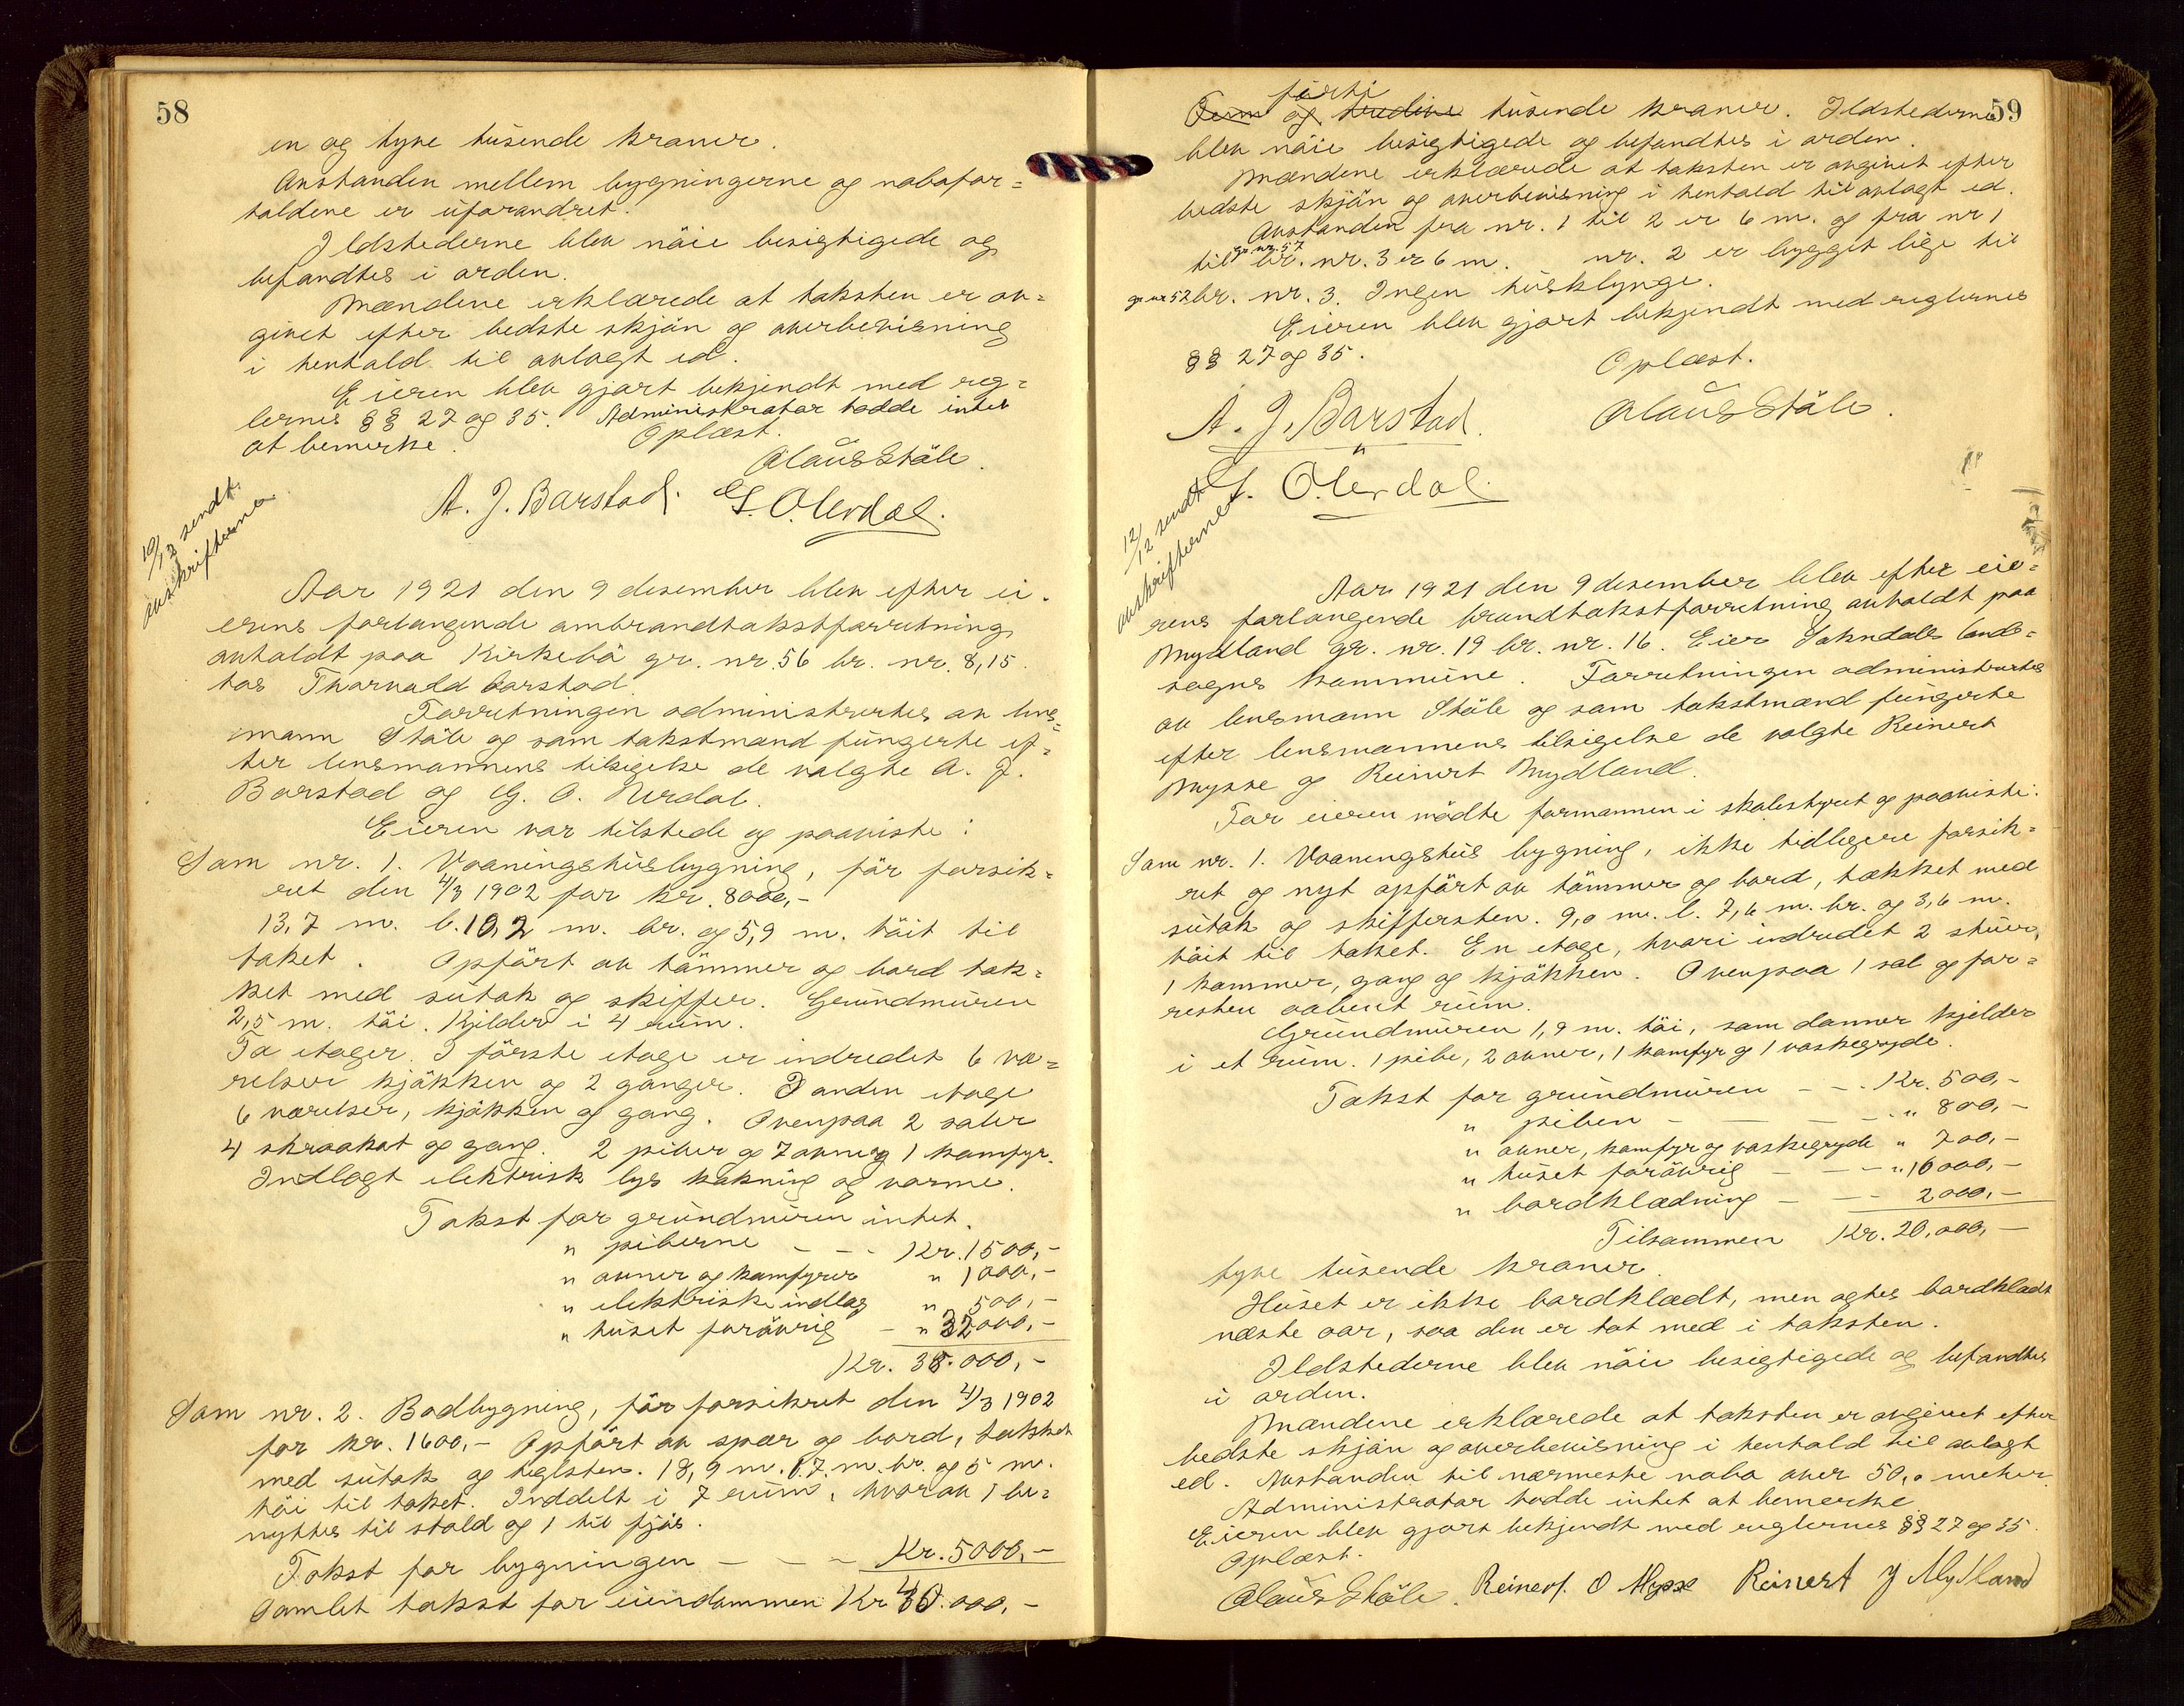 58
en og tyve tusende kroner.
Avstanden mellem bygningerne og nabofor=
holdene er uforandret.
Ildstederne blev nöie besigtigede og
befandtes i orden.
Mændene erklærede at taksten er av=
givet efter bedste skjön og overbevisning
i henhold til avlagt ed.
Eieren blev gjort bekjendt med reg=
lernes §§ 27 og 35. Administrator hadde intet
at bemerke. Oplæst.
Olaus Ståle.
A. J. Barstad. G. O. Nerdal.
10/12 sendt
avskrifterne
Aar 1921 den 9 desember blev efter ei-
erens forlangende ombrandtakstforretning
avholdt paa Kirkebö gr. nr. 56 br. nr. 8,15.
hos Thorvald Barstad.
Forretningen administrertes av lens=
mann Ståle og som takstmænd fungerte ef=
ter lensmannens tilsigelse de valgte A. J.
Barstad og G. O. Nerdal.
Eieren var tilstede og paaviste:
Som nr. 1. Vaaningshusbygning, för forsik=
ret den 4/3 1902 for kr. 8000,-
13,7 m. l. 10,2 m. br. og 5,9 m. höit til
taket. Opfört av tömmer og bord tæk=
ket med sutak og skiffer. Grundmuren
2,5 m. höi. Kjelder i 4 rum.
To etager. I förste etage er indredet 6 væ=
relser kjökken og 2 ganger. I anden etage
6 værelser, kjökken og gang. Ovenpaa 2 saler
4 skraakot og gang. 2 piber og 7 ovner og 1 komfyr.
Indlagt elektrisk lys kokning og varme.
Takst for grundmuren intet.
" piberne - - - Kr. 1500,-
" ovner og komfyrer " 1000,-
" elektriske indlæg " 500,-
" huset forövrig - " 32000,-
Kr. 35.000,-
Som nr. 2. Bodbygning, för forsikret den 4/3 1902
for kr. 1600,- Opfört av spær og bord, tækket
med sutak og teglsten. 18,9 m. l. 7. m. br. og 5 m.
höi til taket. Inddelt i 7 rum, hvorav 1 be=
nyttes til stald og 1 til fjös.
Takst for bygningen - - - Kr. 5000,-
Samlet takst for eiendommen Kr 40.000,-
59
förti
Fem og tredive tusende kroner. Ildstederne
blev nöie besigtigede og befandtes i orden.
Mændene erklærede at taksten er avgivet efter
bedste skjön og overbevisning i henhold til avlagt ed.
Avstanden fra nr. 1 til 2 er 6 m. og fra nr 1
gr. nr. 57
til br. nr. 3 er 6 m. nr. 2 er bygget lige til
gr nr 52 br. nr. 3. Ingen husklynge.
Eieren blev gjort bekjendt med reglernes
§§ 27 og 35. Oplæst.
A. J. Barstad. Olaus Ståle.
G. O. Nerdal.
12/12 sendt
avskrifterne
Aar 1921 den 9 desember blev efter eie=
rens forlangende brandtakstforretning avholdt paa
Mydland gr. nr. 19 br. nr. 16. Eier Sokndals lands=
sogns kommune. Forretningen administrertes
av lensmann Ståle og som takstmænd fungerte
efter lensmannens tilsigelse de valgte Reinert
Mysse og Reinert Mydland.
For eieren mödte formannen i skolestyret og paaviste:
Som nr. 1. Vaaningshus bygning, ikke tidligere forsik=
ret og nyt opfört av tömmer og bord, tækket med
sutak og skiffersten. 9,0 m. l. 7,6 m. br. og 3,6 m.
höit til taket. En etage, hvori indredet 2 stuer,
1 kammer, gang og kjökken. Ovenpaa 1 sal og for=
resten aabent rum.
Grundmuren 1,9 m. höi, som danner kjelder
i et rum. 1 pibe, 2 ovner, 1 komfyr og 1 vaskegryde.
Takst for grundmuren - - - Kr. 500,-
" piben - - - " 800,-
" ovner, komfyr og vaskegryde " 700,-
" huset forövrig - - - " 16000,-
" bordklædning - - - 2000,-
Tilsammen Kr. 20,000,-
tyve tusende kroner.
Huset er ikke bordklædt, men agtes bordklædt
næste aar, saa den er tat med i taksten.
Ildstederne blev nöie besigtigede og befandtes
i orden.
Mændene erklærede at taksten er avgivet efter
bedste skjön og overbevisning i henhold til avlagt
ed. Avstanden til nærmeste nabo over 50,0 meter.
Administrator hadde intet at bemerke.
Eieren blev gjort bekjendt med reglernes §§ 27 og 35.
Oplæst.
Olaus Ståle. Reinert. O Mysse Reinert J Mydland